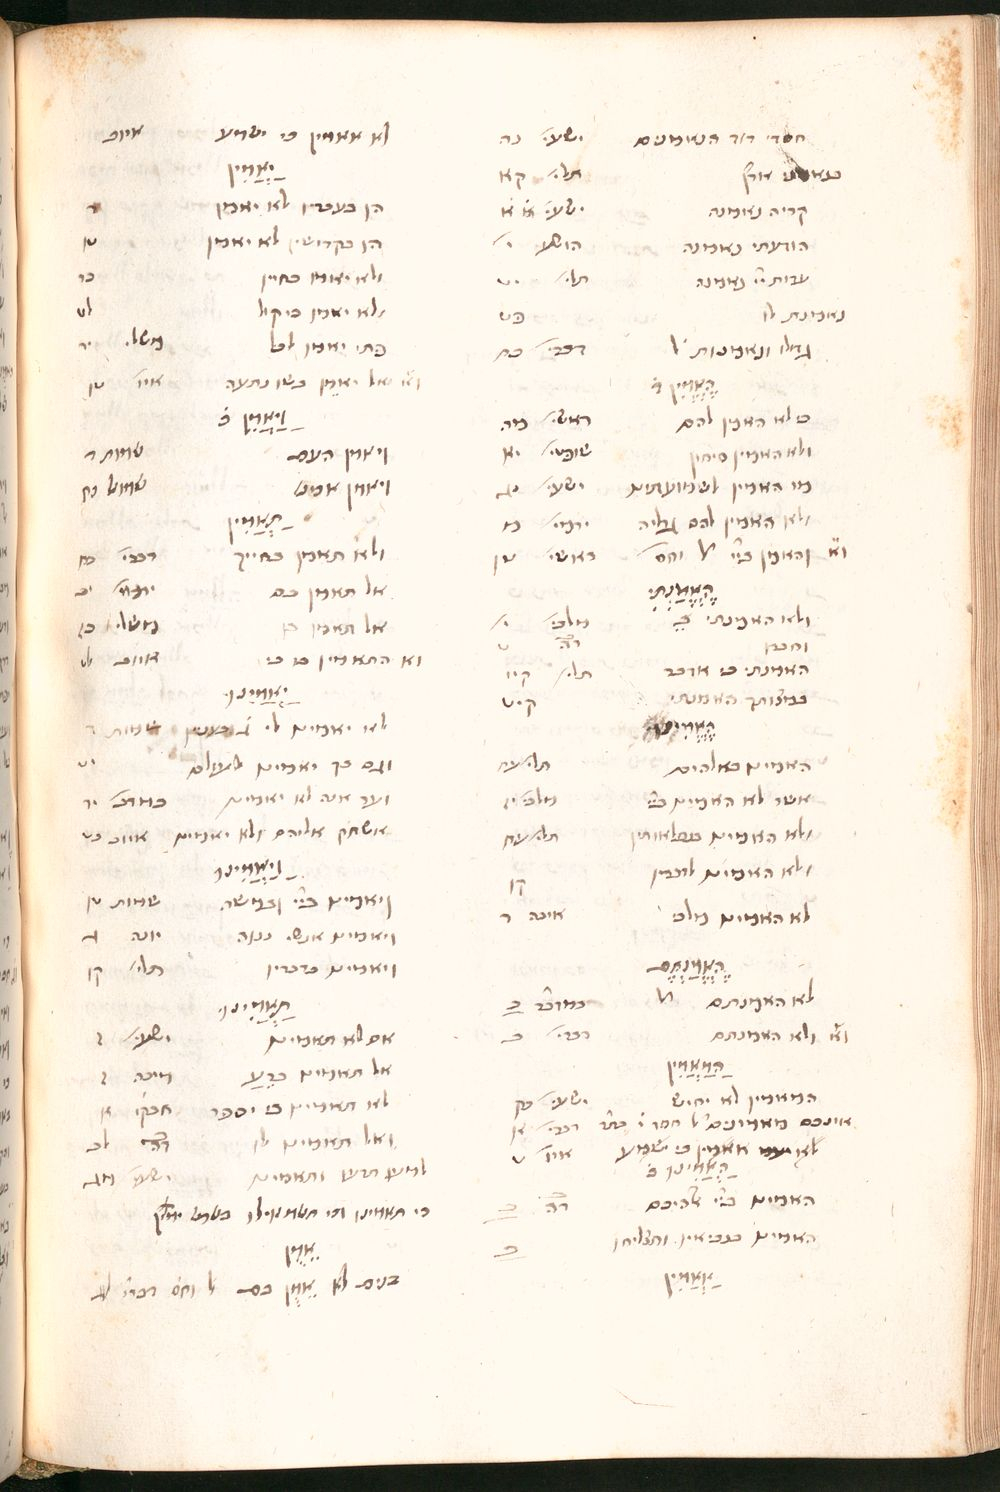 חסדי דוד הנאמנים ישעי׳ נה
בנאמני ארץ תלי׳ קא
קריה נאמנה ישעי׳ א
הודעתי נאמנה הושע ׳
עדות יי נאמנה תלי׳ יט
נאמנת לו פט
גדולו ונאמנות ל׳ דברי׳ כח
הֶאֱמִין
כי לא האמין להם ראשי׳ מה
ולא האמין סיחון שופטי׳ יא
מי האמין לשמועתינו ישעי׳ נג
ולא האמין להם גדליה ירמי׳ מ
וא׳ והאמין ביי ל׳ וחס׳ ראשי׳ טו
הֶאֱמַנְתִּי
ולא האמנתי מלכי׳ י׳
וחברו דה׳ ט
האמנתי כי אדבר תלי׳ קיו
במצותיך האמנתי קיט
הֶאֱמִינוּ
האמינו באלהים תלי׳ עח
אשר לא האמינו ביי מלכי׳ יז
ולא האמינו בנפלאותיו תלי׳ עח
ולא האמינו לדברו קו
לא האמינו מלכי איכה ד
הֶאֱמַנְתֶּם
לא האמנתם ל׳ במדבר כ
וא׳ ולא האמנתם דברי׳ ט
הַמַּאֲמִין
המאמין לא יחיש ישעי׳ כח
אינכם מאמינים ל׳ חסר י׳ דברי׳ א
לא אאמין כי ישמע איו׳ ט
הַאֲמִינוּ ב׳
האמינו ביי אלהיכם דה׳ כ
האמינו בנביאיו והצליחו כ
אַאֲמִין
לא אאמין כי ישמע איוב
יַאֲמִין
הן בעבדיו לא יאמין ד
הן בקדושיו לא יאמין טו
ולא יאמין בחייו כד
ולא יאמין כי קול לט
פתי יאמין לכל משלי׳ יד
וא׳ אל יאמן בשו נתעה איו׳ טו
וַיַּאֲמֵן ב׳
ויאמן העם שמות ד
ויאמן אכיש שמוא׳ כז
תַאֲמִין
ולא תאמין בחייך דברי׳ כח
אל תאמין בם ירמי׳ יב
אל תאמין בו משלי׳ כו
וא׳ התאמין בו כי איוב לט
יַאֲמִינוּ
לא יאמינו לי שמות ד
וגם בך יאמינו לעולם יט
ועד אנה לא יאמינו במדבר יד
אשחק אליהם לא יאמינו איוב כט
וַיַּאֲמִינוּ
ויאמינו ביי ובמשה שמות יד
ויאמינו אנשי נינוה יונה ג
ויאמינו בדבריו תלי׳ קו
תַאֲמִינוּ
אם לא תאמינו ישעי׳ ז
אל תאמינו ברֵעַ מיכה ז
לא תאמינו כי יספר חבקו׳ א
ואל תאמינו לו דה׳ לב
למען תדעו ותאמינו ישעי׳ מג
אֵמֻן
בנים לא אֵמֻן בם ל׳ וחס׳ דברי׳ לב